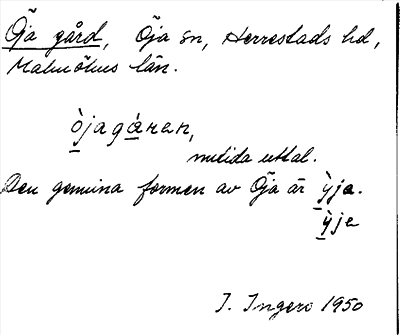 Öja gård, Öja sn, Herrestads hd,
Malmöhus län.
òjagáren,
nutida uttal.
Den genuina formen av Öja är ỳja.
ỳje
I. Ingers 1950